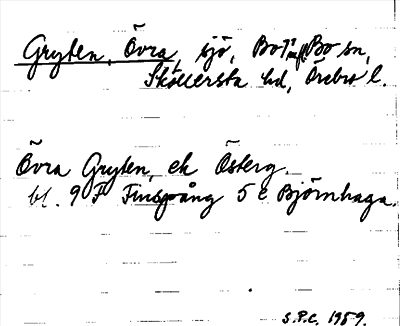 Gryten, Övra, sjö, Bo sn,
Sköllersta hd, Örebro l.
Övra Gryten, ek Österg.
bl. 9 F Finspång 5 e Björnhaga.
S.P.C. 1959.